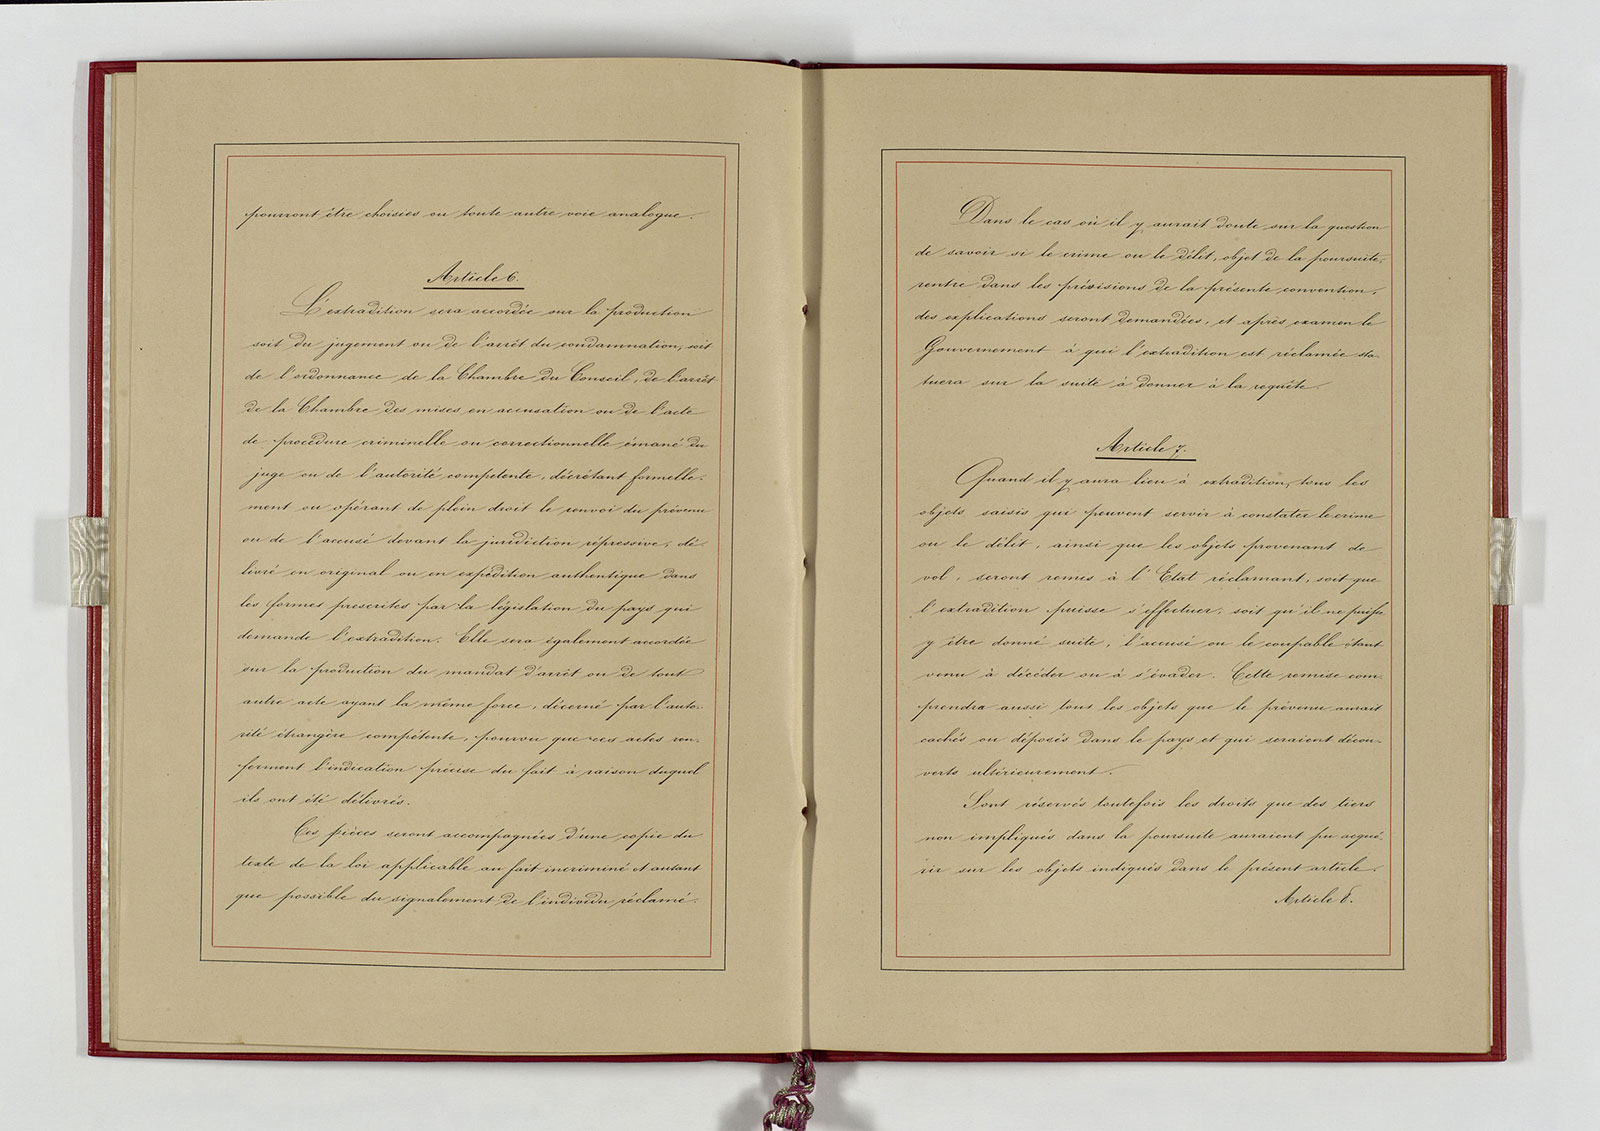 pourront être choisies ou toute autre voie analogue.
Article 6.
L'extradition sera accordée sur la production
soit du jugement ou de l'arrêt du condamnation, soit
de l'ordonnance de la Chambre du Conseil, de l'arrêt
de la Chambre des mises en accusation ou de l'acte
de procédure criminelle ou correctionnelle émané du
juge ou de l'autorité compétente, décrétant formelle-
ment ou opérant de plein droit le renvoi du prévenu
ou de l'accusé devant la juridiction répressive, dé-
livré en original ou en expédition authentique dans
les formes prescrites par la législation du pays qui
demande l'extradition. Elle sera également accordée
sur la production du mandat d'arrêt ou de tout
autre acte ayant la même force, décerné par l'auto-
rité étrangère compétente, pourvu que ces actes ren-
ferment l'indication précise du fait à raison duquel
ils ont été délivrés.
Ces pièces seront accompagnées d'une copie du
texte de la loi applicable au fait incriminé et autant
que possible du signalement de l'individu réclamé.
Dans le cas où il y aurait doute sur la question
de savoir si le crime ou le délit, objet de la poursuite,
rentre dans les prévisions de la présente convention,
des explications seront demandées, et après examen le
Gouvernement à qui l'extradition est réclamée sta-
tuera sur la suite à donner à la requête.
Article 7.
Quand il y aura lieu à extradition, tous les
objets saisis qui peuvent servir à constater le crime
ou le délit, ainsi que les objets provenant de
vol, seront remis à l'Etat réclamant, soit que
l'extradition puisse s'effectuer, soit qu'il ne puisse
y être donné suite, l'accusé ou le coupable étant
venu à décéder ou à s'évader. Cette remise com-
prendra aussi tous les objets que le prévenu aurait
cachés ou déposés dans le pays et qui seraient décou-
verts ultérieurement.
Sont réservés toutefois les droits que des tiers
non impliqués dans la poursuite auraient pu acqué-
rir sur les objets indiqués dans le présent article.
Article 8.